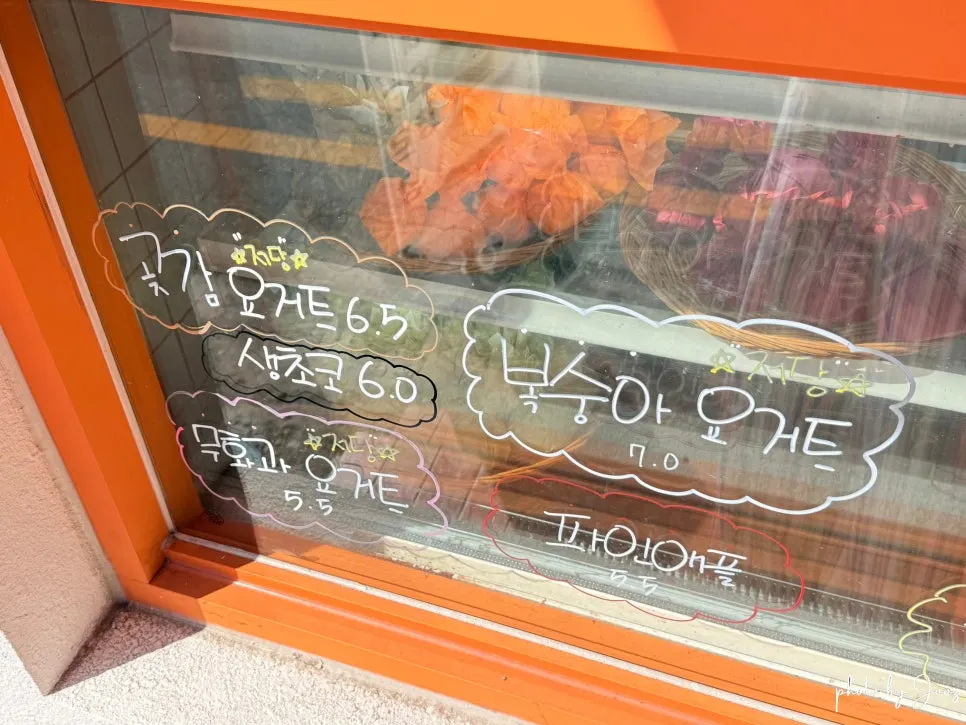 ☆저당☆
곶감 요거트 6.5
생초코 6.0
☆저당☆
무화과 요거트
5.5
☆저당☆
복숭아 요거트
7.0
파인애플
5.5
photo by